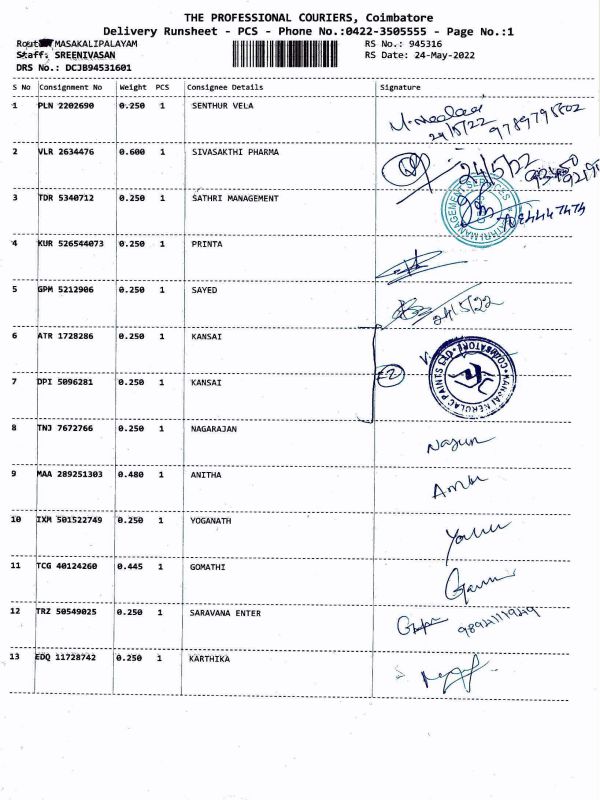 THE PROFESSIONAL COURIERS, Coimbatore
Delivery Runsheet - PCS - Phone No.:0422-3505555 - Page No.:1
Route MASAKALIPALAYAM
RS No.: 945316
Staff: SREENIVASAN
RS Date: 24-May-2022
DRS No.: DCJB94531601
S No Consignment No Weight PCS Consignee Details Signature
1 PLN 2202690 0.250 1 SENTHUR VELA
24/5/22
2 VLR 2634476 0.600 1 SIVASAKTHI PHARMA 24/5/22
3 TDR 5340712 0.250 1 SATHRI MANAGEMENT
4 KUR 526544073 0.250 1 PRINTA
5 GPM 5212906 0.250 1 SAYED 24/5/22
6 ATR 1728286 0.250 1 KANSAI
KANSAI NEROLAC PAINTS LTD. COIMBATORE
2
7 DPI 5096281 0.250 1 KANSAI
8 TNJ 7672766 0.250 1 NAGARAJAN
9 MAA 289251303 0.480 1 ANITHA
10 IXM 501522749 0.250 1 YOGANATH
11 TCG 40124260 0.445 1 GOMATHI
12 TRZ 50549025 0.250 1 SARAVANA ENTER
13 EDQ 11728742 0.250 1 KARTHIKA